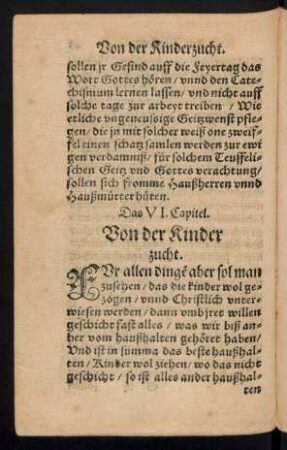 Von der Kinderzucht.
sollen jr Gesind auff die Feyertag das
Wort Gottes hören / vnnd den Cate-
chismum lernen lassen / vnd nicht auff
solche tage zur arbeyt treiben / Wie
etliche vngeneusige Geitzwenst pfle-
gen / die jn mit solcher weiß one zweif-
fel einen schatz samlen werden zur ewi
gen verdamniß / für solchem Teuffeli-
schen Geitz vnd Gottes verachtung /
sollen sich fromme Haußherren vnnd
Haußmütter hüten.
Das VI. Capitel.
Von der Kinder
zucht.
FVr allen dingē aber sol man
zusehen / das die kinder wol ge-
zogen / vnnd Christlich vnter-
wiesen werden / dann vmb jret willen
geschicht fast alles / was wir biß an-
her vom haußhalten gehöret haben /
Vnd ist in summa das beste haußhal-
ten / Kinder wol ziehen / wo das nicht
geschicht / so ist alles ander haußhal-
ten